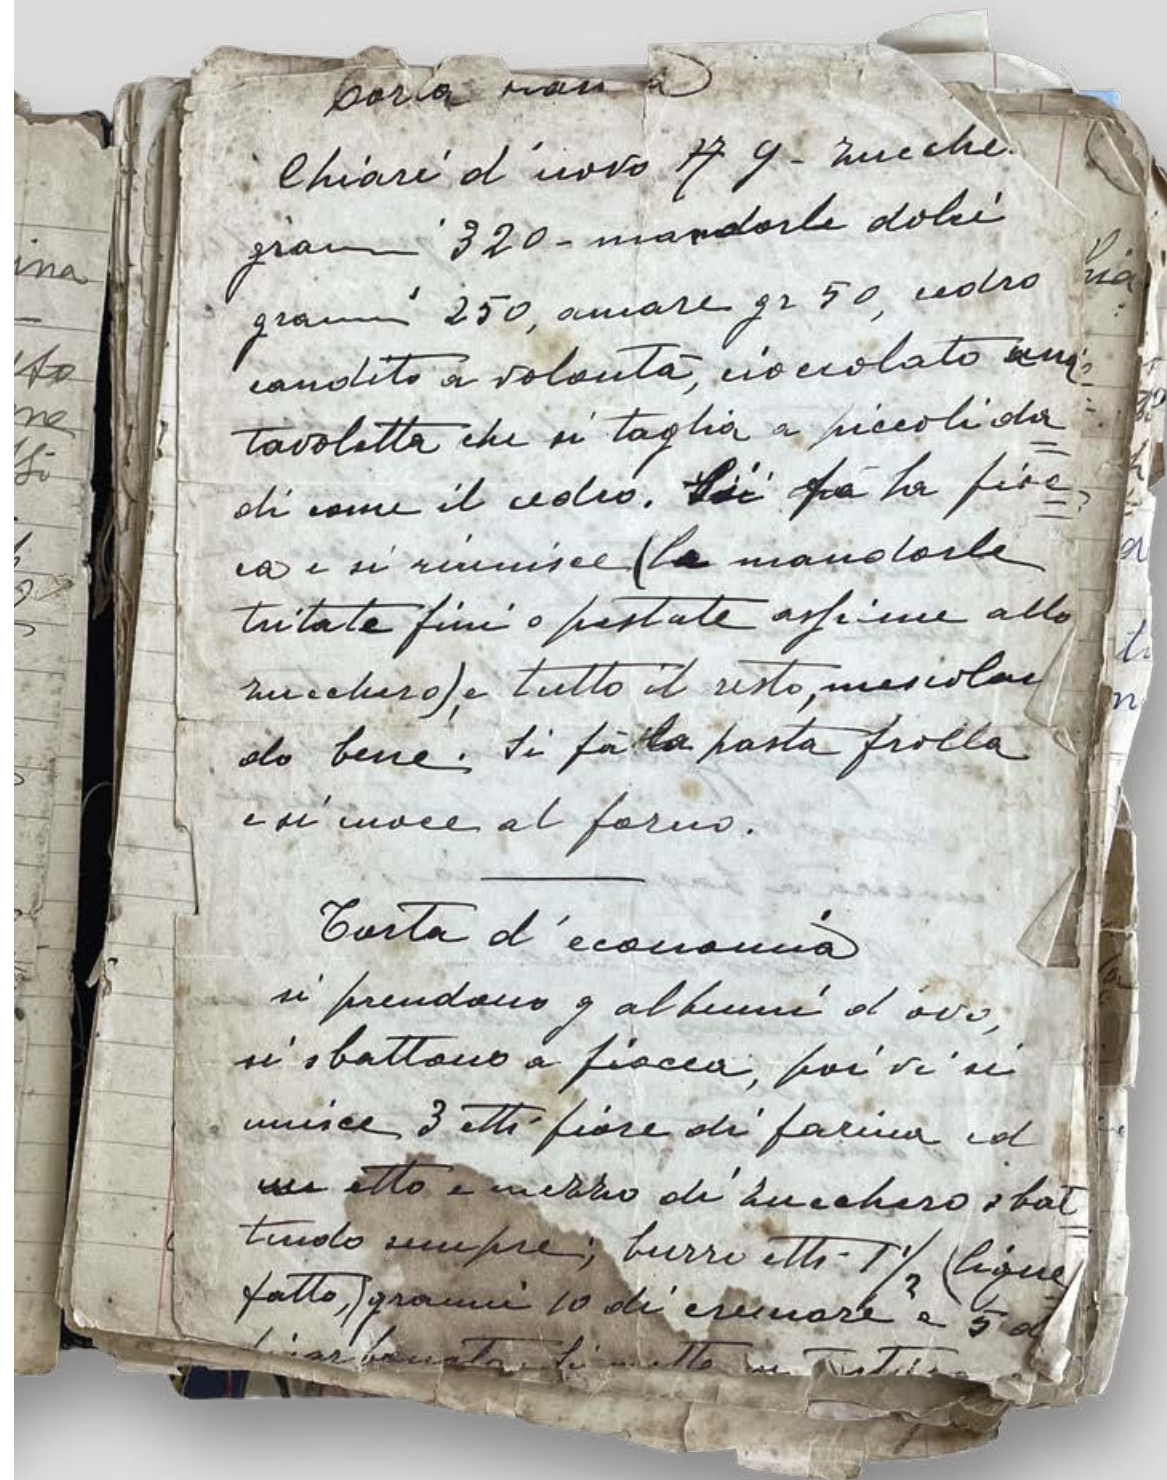 Chiari d'uovo 9 - zucche.
grammi 320 - mandorle dolci
grammi 250, amare gr 50, cedro
candito a volontà, cioccolato una
tavoletta che si taglia a piccoli da
di come il cedro. Si fà la fioc
ca e si riunisce (le mandorle
tritate fini o pestate assieme allo
zucchero), e tutto il resto, mescolan
do bene. Si fà la pasta frolla
e si cuoce al forno.
Torta d'economia
si prendono 9 albumi d'ovo,
si sbattono a fiocca, poi vi si
unisce 3 etti fiore di farina ed
un etto e mezzo di zucchero sbat
tendo sempre; burro etti 1 1/2 (lique
fatto,) grammi 10 di cremore e 5 di
bicarbonato. Si mette in
ina